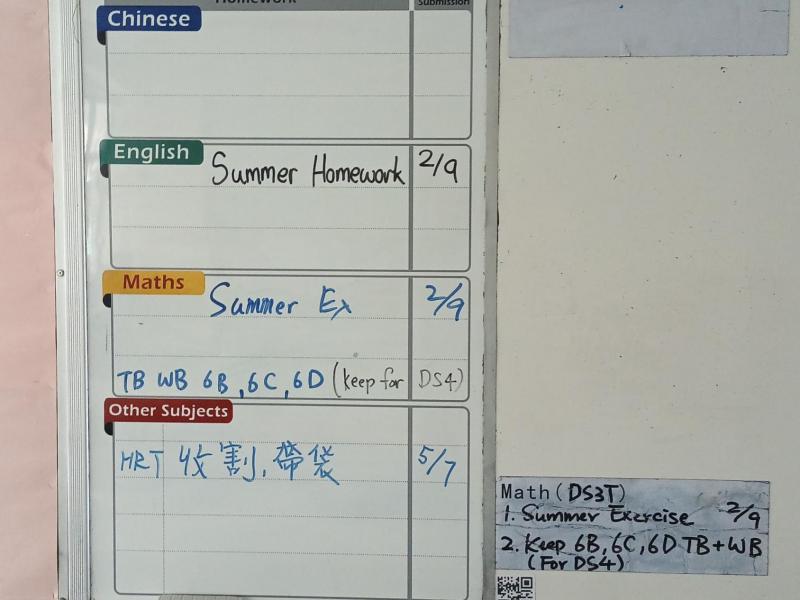 Homework
Submission
Chinese
English
Summer Homework 2/9
Maths
Summer Ex 2/9
TB WB 6B, 6C, 6D (keep for DS4)
Other Subjects
HRT 收割, 帶袋 5/7
Math (DS3T)
1. Summer Exercise 2/9
2. Keep 6B, 6C, 6D TB+WB
(For DS4)